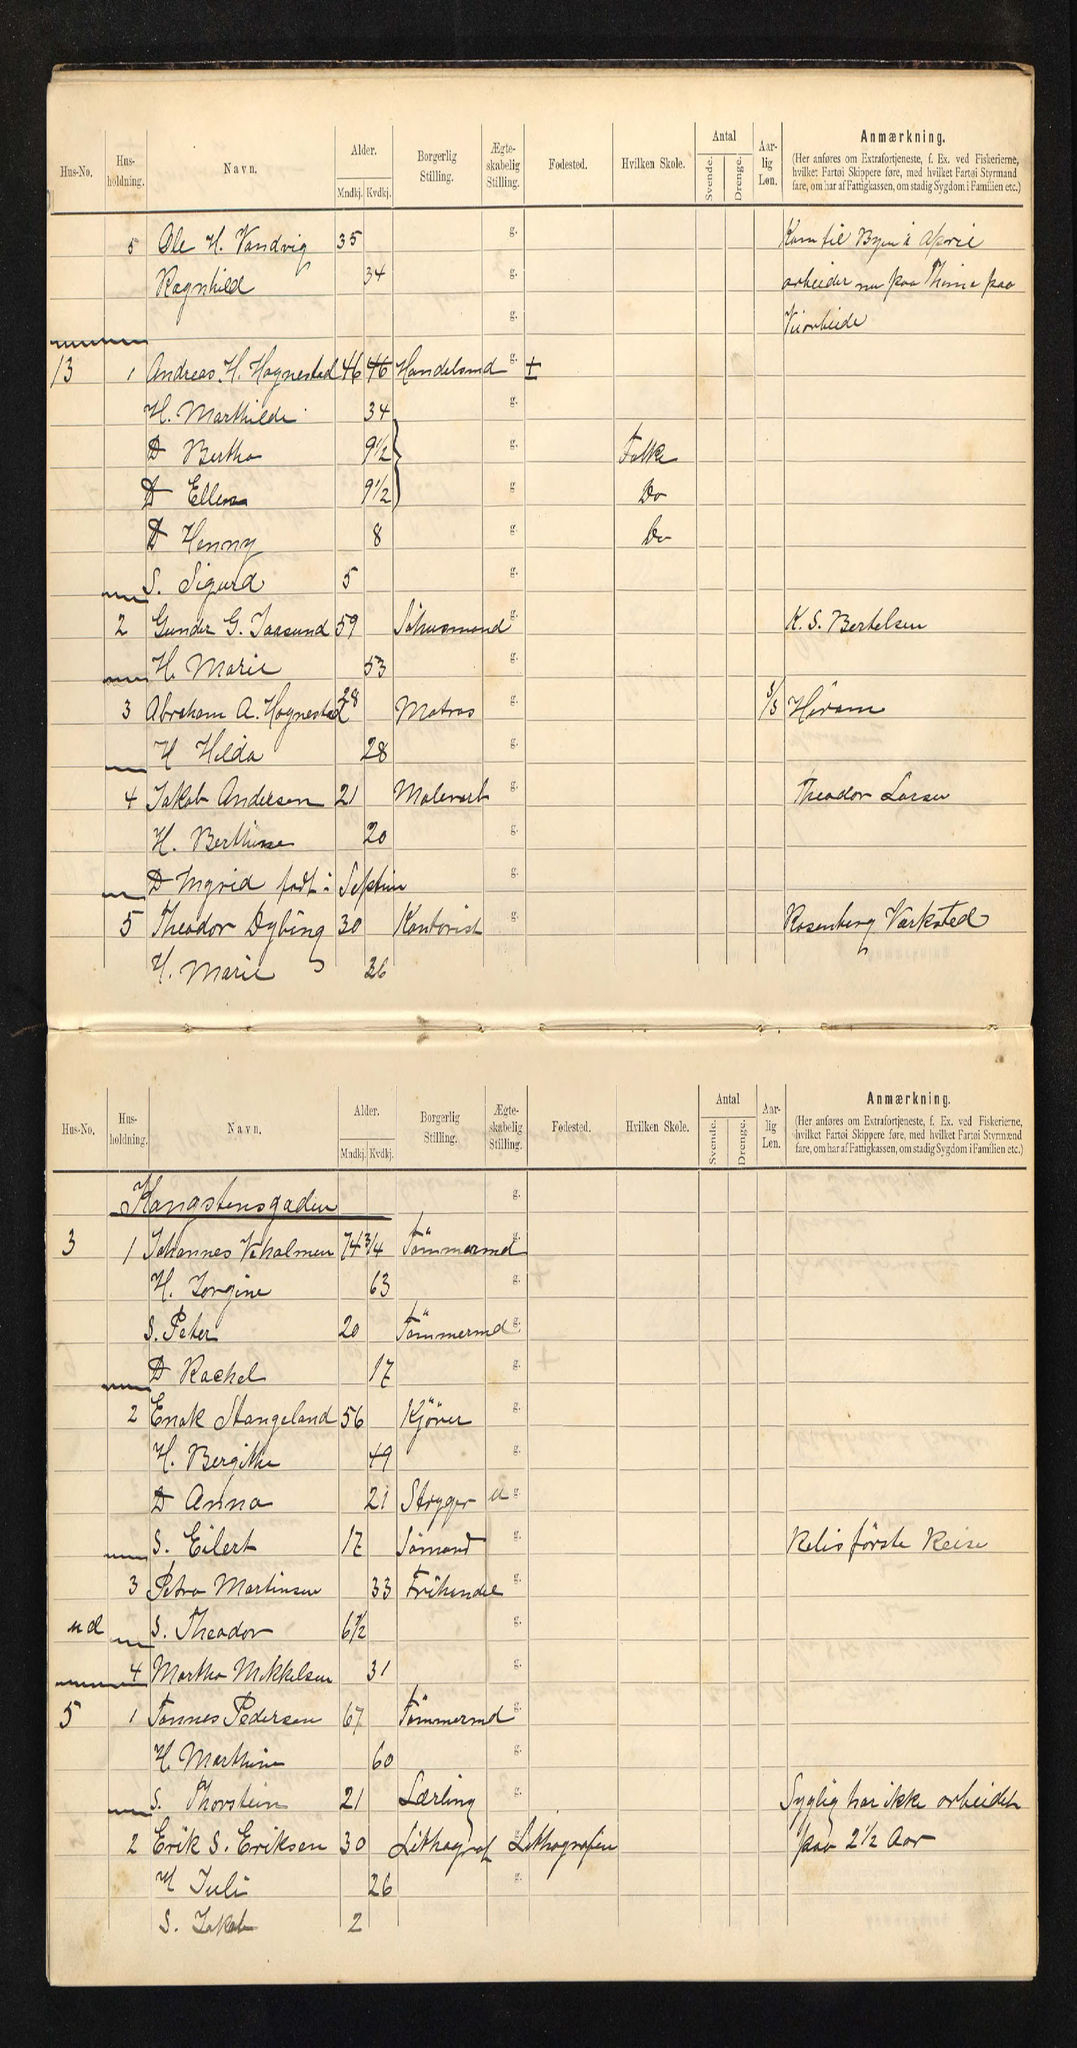 Hus-No. Hus-holdning. Navn. Alder. Mndkj. Kvdkj. Borgerlig Stilling. Ægte-skabelig Stilling. Fødested. Hvilken Skole. Antal Svende. Drenge. Aar-lig Løn. Anmærkning.
(Her anføres om Extrafortjeneste, f. Ex. ved Fiskerierne, hvilket Fartøi Skippere føre, med hvilket Fartøi Styrmand fare, om har af Fattigkassen, om stadig Sygdom i Familien etc.)
5 Ole H. Vandvig 35 g. Kom til Byen i April
Ragnhild 34 g. arbeider nu paa Thime paa
g. Veiarbeide
13 1 Andreas H. Hognestad 46 46 Handelsmd g. +
H. Marthilde 34 g.
D Bertha 9 1/2 g. Folke
D Ellen 9 1/2 g Do
D Henny 8 g. Do
S. Sigurd 5 g.
2 Gunder G. Jaasund 59 Söhusmand g. K. S. Bertelsen
H. Marie 53 g.
3 Abraham A. Hognestad 28 Matros g. Håram
H Hilda 28 g.
4 Jakob Andersen 21 Malersv g. Theodor Larsen
H. Berthine 20 g.
D Ingrid født i Septbr g.
5 Theodor Dybing 30 Kontorist g. Rosenberg Værksted
H. Marie 26
Hus-No. Hus-holdning. Navn. Alder. Mndkj. Kvdkj. Borgerlig Stilling. Ægte-skabelig Stilling. Fødested. Hvilken Skole. Antal Svende. Drenge. Aar-lig Løn. Anmærkning.
(Her anføres om Extrafortjeneste, f. Ex. ved Fiskerierne, hvilket Fartøi Skippere føre, med hvilket Fartøi Styrmand fare, om har af Fattigkassen, om stadig Sygdom i Familien etc.)
Kongstensgaden g.
3 1 Johannes Viholmen 74 3/4 Tömmermd g.
H. Jorgine 63 g.
S. Peter 20 Tömmermd g.
D Rachel 17 g.
2 Enok Stangeland 56 Kjörer g.
H. Bergitte 49 g.
D Anna 21 Stryger u g.
S. Eilert 17 Sömand g. första Reise
3 Petra Martinsen 33 g.
ud S. Theodor 6 1/2 g.
4 Martha Mikkelsen 31 g.
5 1 Tönnes Pedersen 67 Tömmermd g.
H. Marthine 60 g.
S. Thorstein 21 Lærling g. Syglig har ikke arbeidet
2 Erik S. Eriksen 30 Lithograf Lithografien paa 2 1/2 Aar
H Juli 26 g.
S. Jakob 2